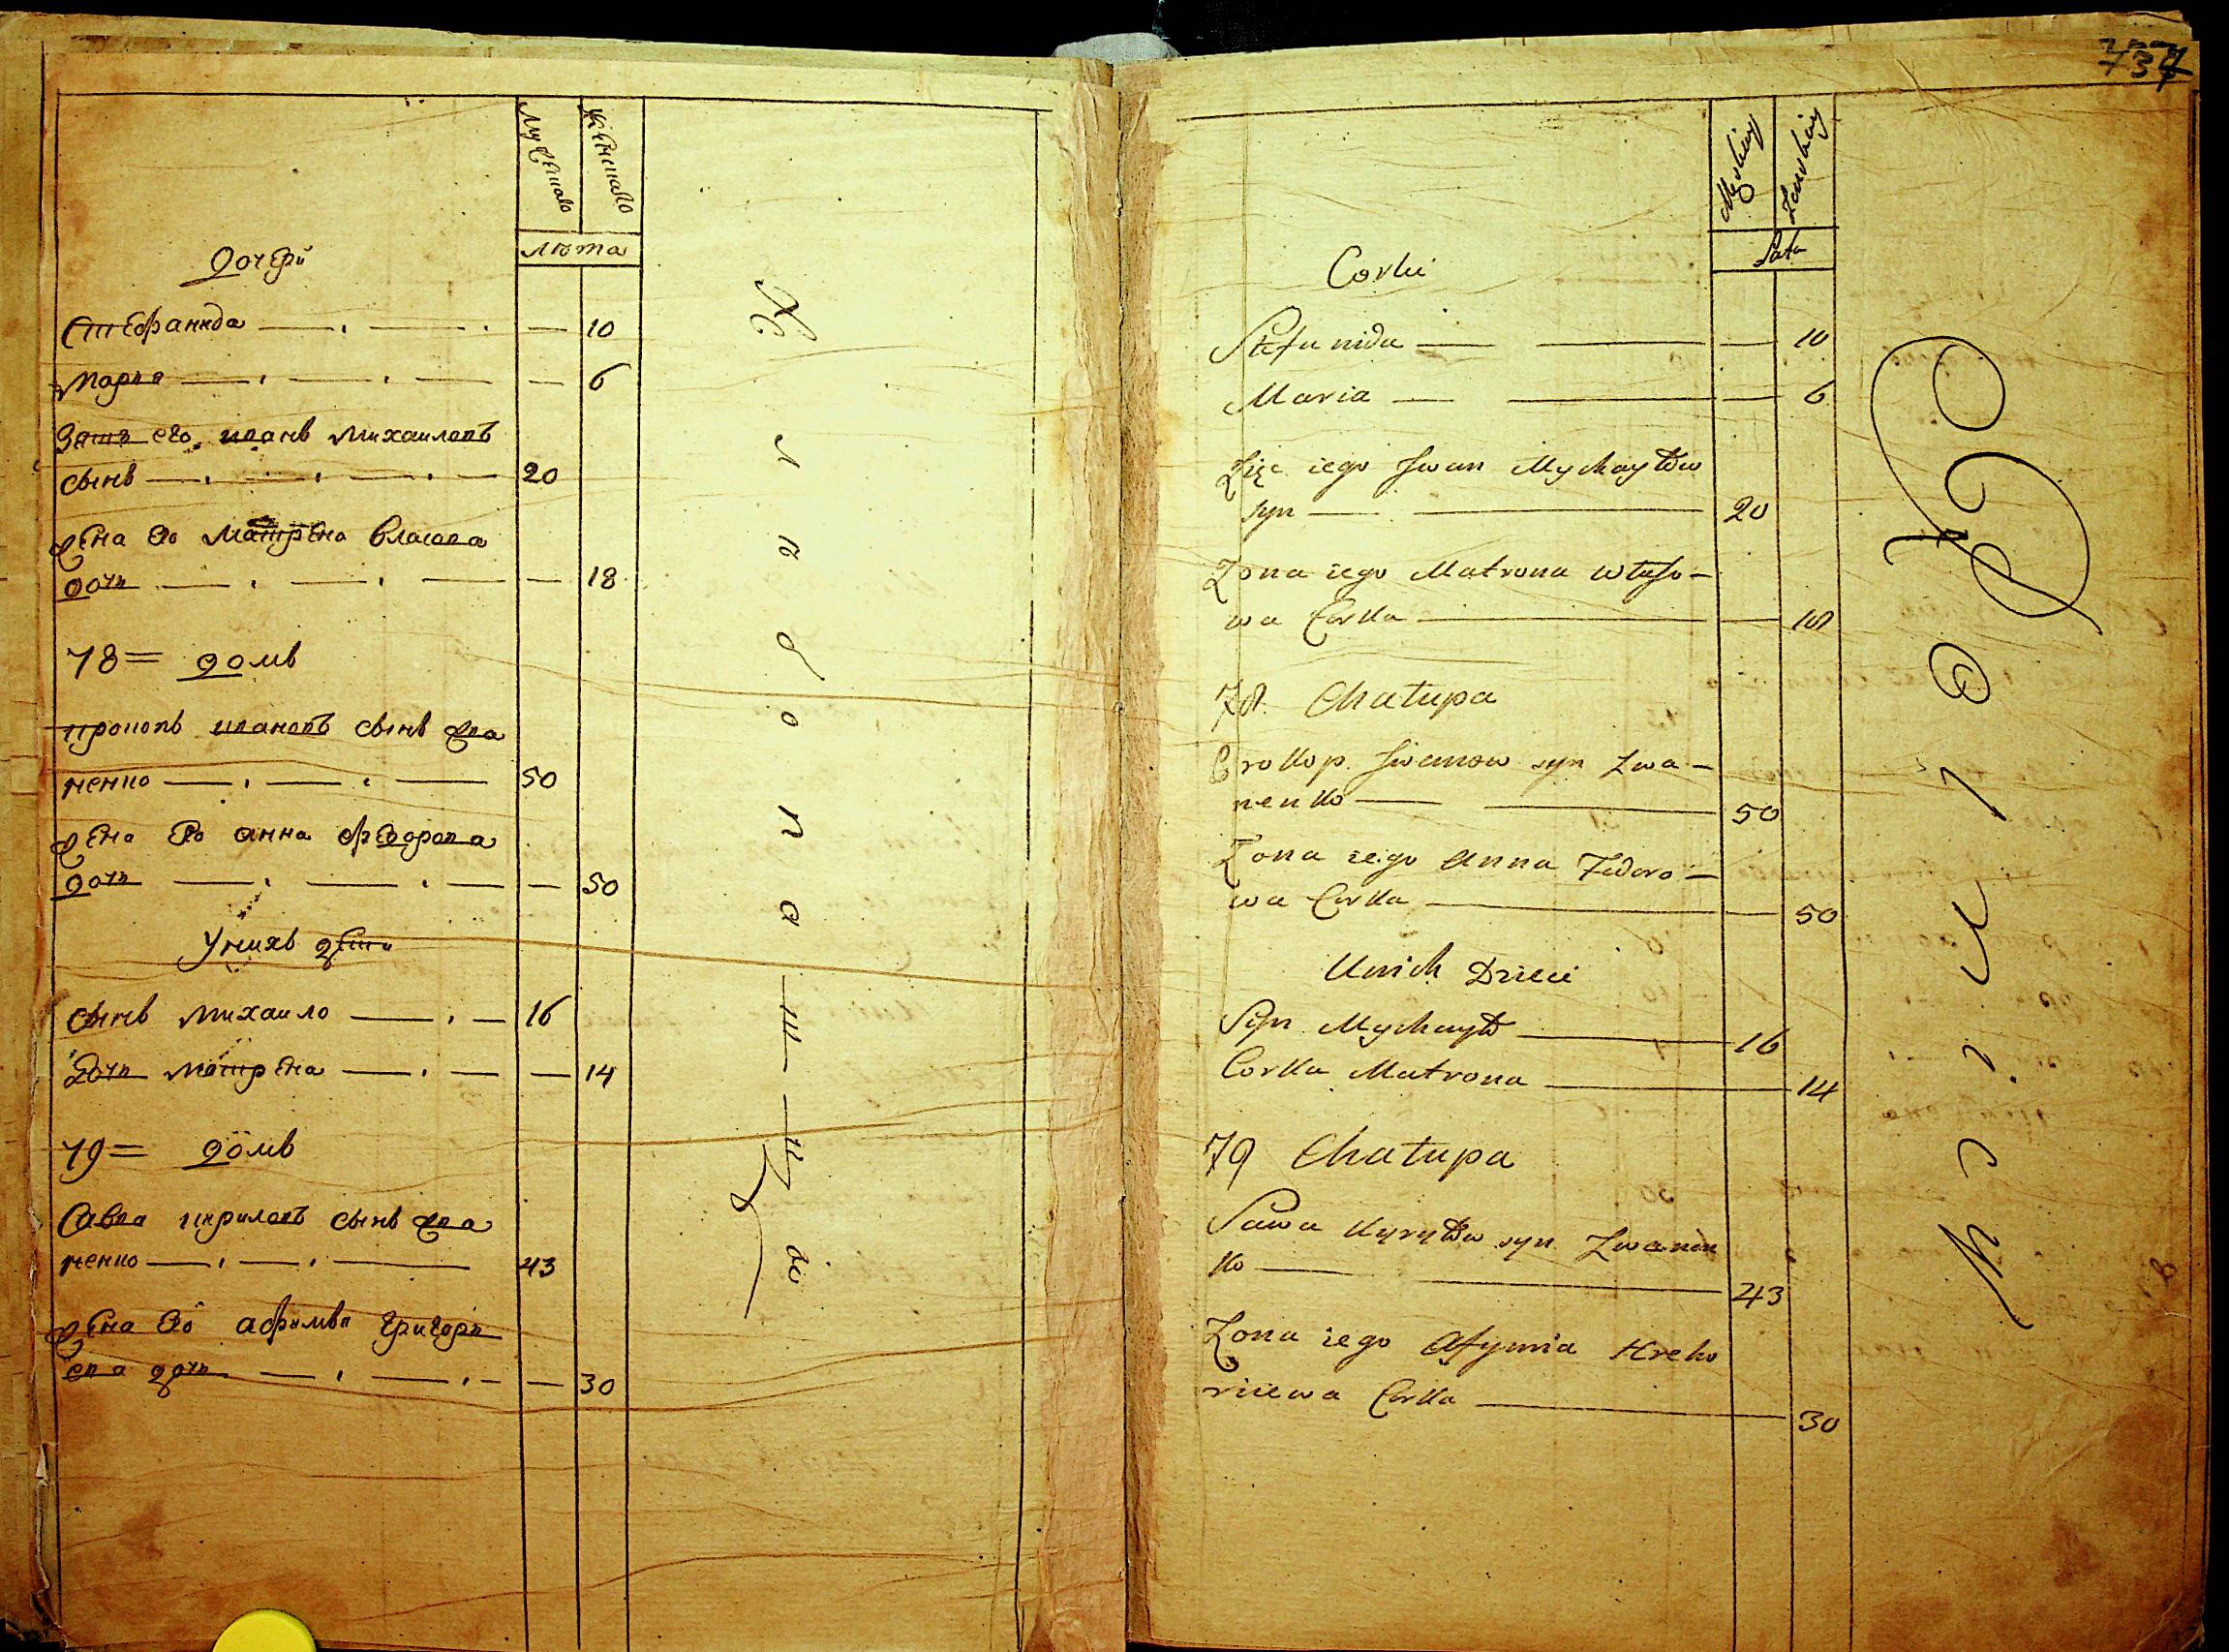 Мужеска
Женска
лѣта
Дочери
Стефанида 10
Мария 6
Зять его иванъ Михаиловъ
сынъ 20
Жена его Матрена Власова
дочь 18
78= домъ
прокопъ ивановъ сынъ Зва
ненко 50
Жена его анна Федорова
дочь 50
Унихъ дети
Сынъ Михаило 16
Дочь Матрена 14
79= домъ
Савва кириловъ сынъ Зва
ненко 43
Жена его афимья Григори
ева дочь 30
737
Męskiey
Zenskiey
Lata
Corki
Stefanida 10
Maria 6
Zięc iego Jwan Mychayłow
syn 20
Zona iego Matrona Właso-
wa Corka 18
78. Chałupa
Prokop Jwanow syn Zwa-
nenko 50
Zona iego Anna Fedoro-
wa Corka 50
Unich Dzieci
Syn Mychayło 16
Corka Matrona 14
79 Chałupa
Sawa Kyryłow syn Zwanen
ko 43
Zona iego Afymia Hreho
riiewa Corka 30